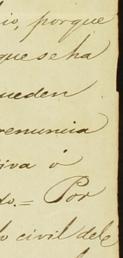 io, porque
que se ha
ueden
renuncia
tiva ó
do. = Por
lo civil dele